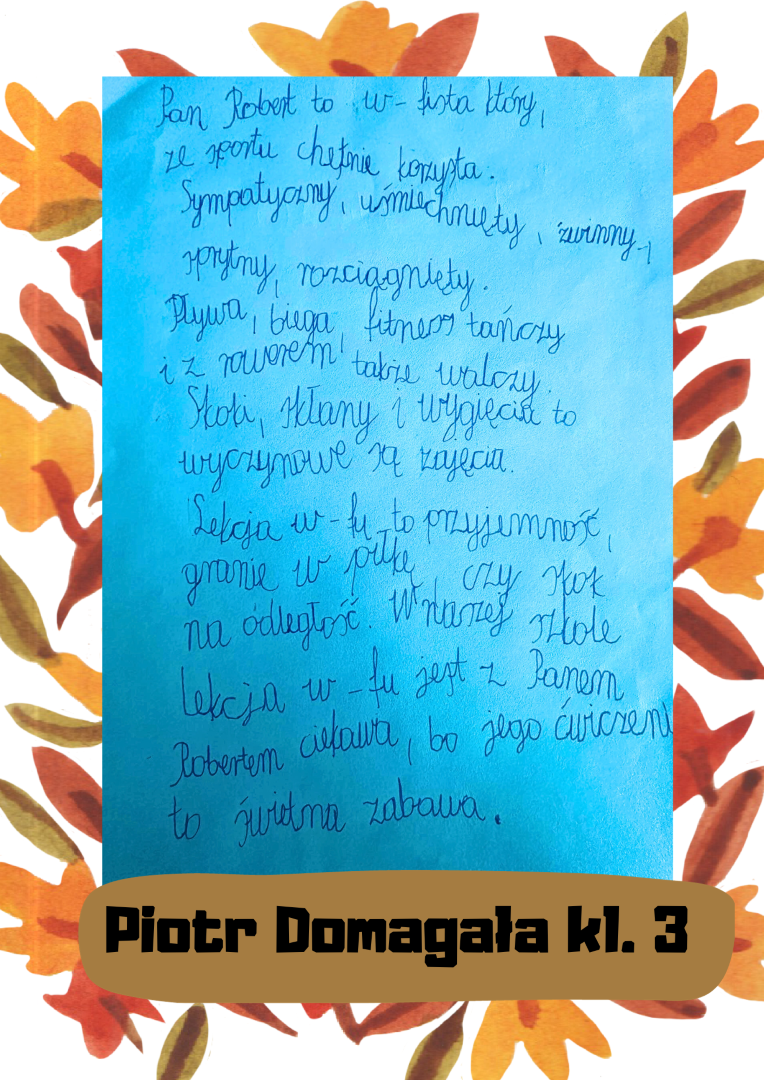 Pan Robert to w-fista który,
ze sportu chętnie korzysta.
Sympatyczny, uśmiechnięty, zwinny,
sprytny, rozciągnięty.
Pływa, biega, fitness tańczy
i z rowerem także walczy.
Skoki, skłany i wygięcia to
wyczynowe są zajęcia.
Lekcja w-fu to przyjemność,
granie w piłkę czy skok
na odległość. W naszej szkole
lekcja w-fu jest z Panem
Robertem ciekawa, bo jego ćwiczeni
to świetna zabawa.
Piotr Domagała kl. 3